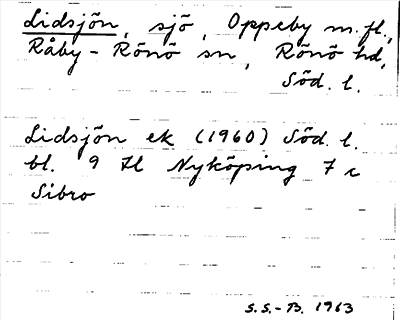 Lidsjön, sjö, Oppeby m.fl.,
Råby-Rönö sn, Rönö hd,
Söd. l.
Lidsjön ek (1960) Söd. l.
bl. 9 H Nyköping 7 c
Sibro
S.S.-B. 1963